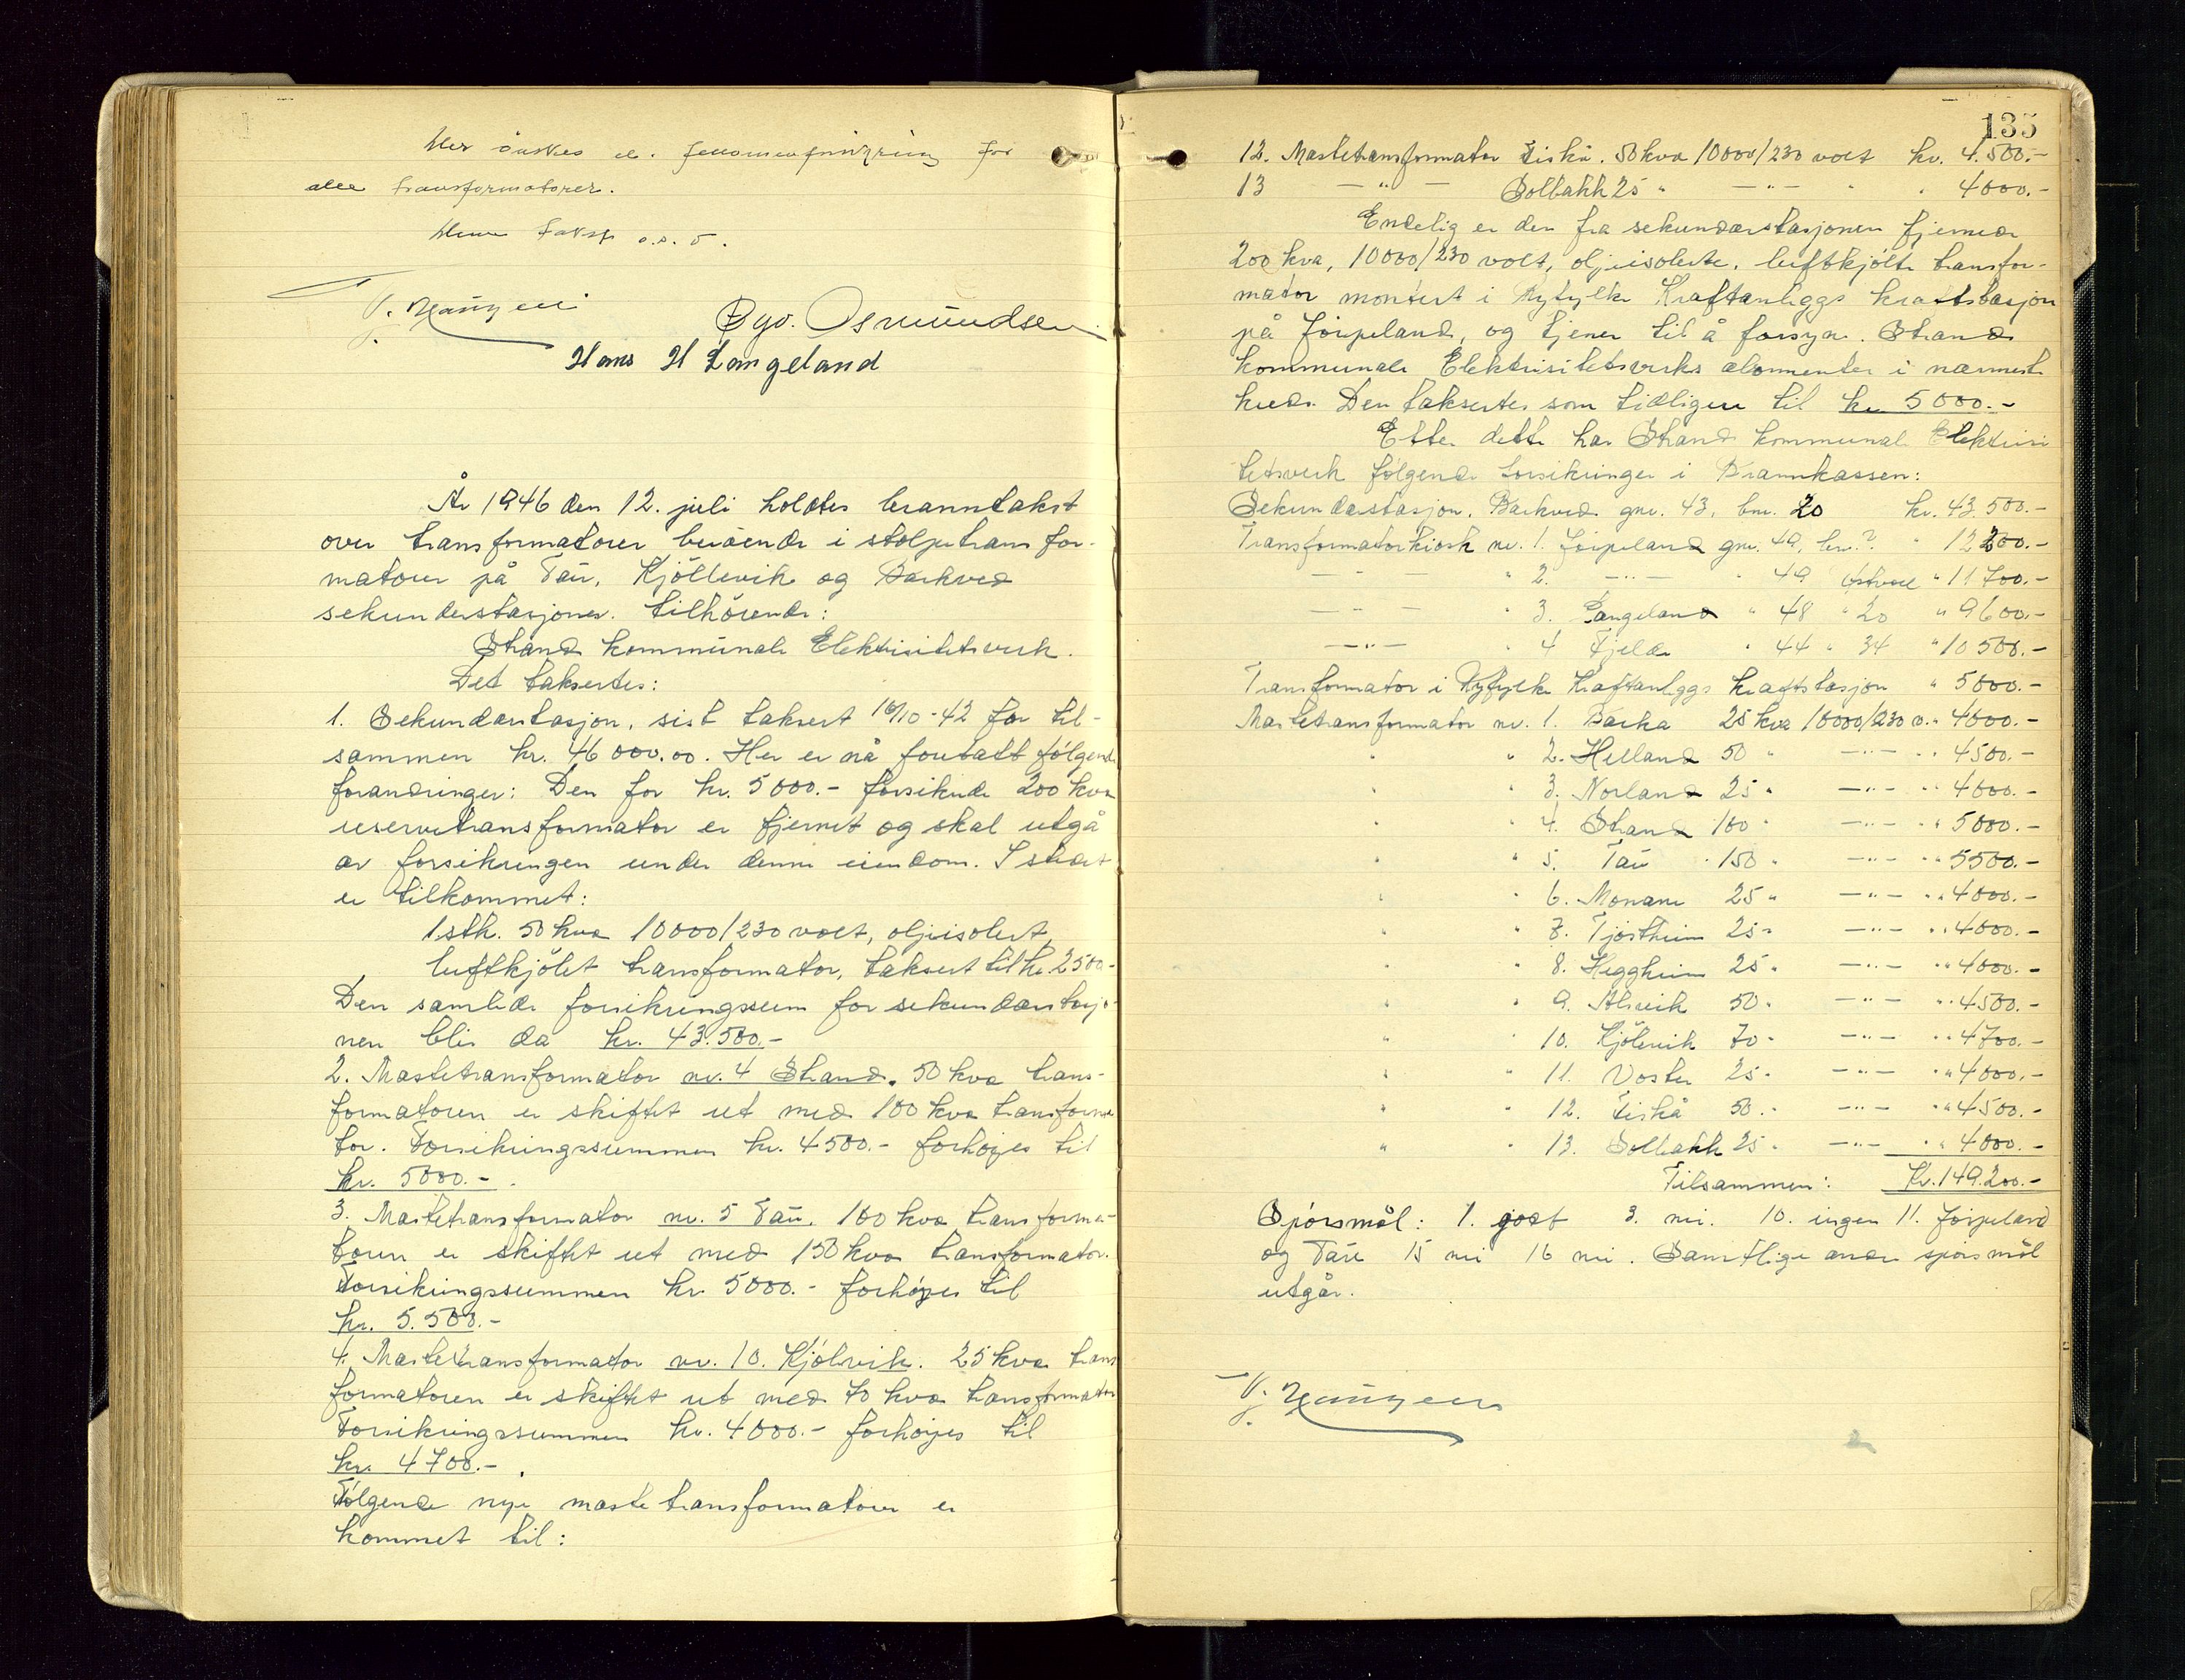 Her önskes el. fenomenforsikring for
alle transformatorer.
Denne takst o.s.v.
Hans H Langeland
År 1946 den 12. juli holdtes branntakst
over transformatorer beroende i stolpetransfor-
matorer på Tau, Kjöllevik og Barkved
sekunderstasjoner. tilhörende:
Strand kommunale Elektrisitetsverk.
Det taksertes:
1. Sekundærstasjon, sist taksert 16/10-42 for til-
sammen kr. 46 000.00. Her er nå foretatt følgende
forandringer: Den for kr. 5000.- forsikrede 200 kva
reservetransformator er fjernet og skal utgå
av forsikringen under denne eiendom. I stedet
er tilkommet:
1 stk. 50 kva 10000/230 volt, oljeisolert,
luftkjölet transformator, taksert til kr. 2500.-
Den samlede forsikringssum for sekundærstasjo-
nen blir da kr. 43.500.-
2. Mastetransformator nr. 4 Strand. 50 kva trans-
formatoren er skiftet ut med 100 kva transforma-
tor. Forsikringssummen kr. 4500.- forhöyes til
kr. 5000.-
3. Mastetransformator nr. 5 Tau. 100 kva transforma-
toren er skiftet ut med 150 kva transformator.
Forsikringssummen kr. 5000.- forhöyes til
kr. 5.500.-
4. Mastetransformator nr. 10. Kjölevik. 25 kva trans
formatoren er skiftet ut med 70 kva transformator
Forsikringssummen kr. 4000.- forhöyes til
kr. 4700.-
Følgende nye mastetransformatorer er
kommet til:
135
12. Mastetransformator Fiskå. 50 kva 10000/230 volt kr. 4.500.-
13 — " — Solbakk 25 " — " — " " 4000.-
Endelig er den fra sekundærstasjonen fjernede
200 kva, 10000/230 volt, oljeisolerte, luftkjölte transfor-
mator montert i Ryfylke Kraftanleggs kraftstasjon
på Jörpeland, og tjener til å forsyne Strand
kommunale Elektrisitetsverks abonnenter i nærmeste
kreds. Den taksertes som tidligere til kr. 5000.-
Etter dette har Strand kommunale Elektrisi
tetsverk følgende forsikringer i Brannkassen:
Sekundærstasjon, Barkved gnr. 43, bnr. 20 kr. 43.500.-
Transformatorkiosk nr. 1. Jörpeland gnr. 49, bnr. ? " 12200.-
— " — " 2. — " — " 49 " 11700.-
— " — " 3. Langeland " 48 " 20 " 9600.-
— " — " 4 Fjelde " 44 " 34 " 10500.-
Transformator i Ryfylke Kraftanleggs kraftstasjon " 5000.-
Mastetransformator nr. 1. Barka 25 kva 10000/230 v. " 4000.-
" " 2. Helland 50 " — " — " " 4500.-
" " 3. Norland 25 " — " — " " 4000.-
" " 4. Strand 100 " — " — " " 5000.-
" " 5. Tau 150 " — " — " " 5500.-
" " 6. Monane 25 " — " — " " 4000.-
" " 7. Tjöstheim 25 " — " — " " 4000.-
" " 8. Heggheim 25 " — " — " " 4000.-
" " 9. Alsvik 50 " — " — " " 4500.-
" " 10. Kjölevik 70 " — " — " " 4700.-
" " 11. Voster 25 " — " — " " 4000.-
" " 12. Fiskå 50 " — " — " " 4500.-
" " 13. Solbakk 25 " — " — " " 4000.-
Tilsammen: Kr. 149.200.-
Spörsmål: 1. godt 3. nei. 10. ingen 11. Jörpeland
og Tau 15 nei 16 nei. Samtlige andre spörsmål
utgår.